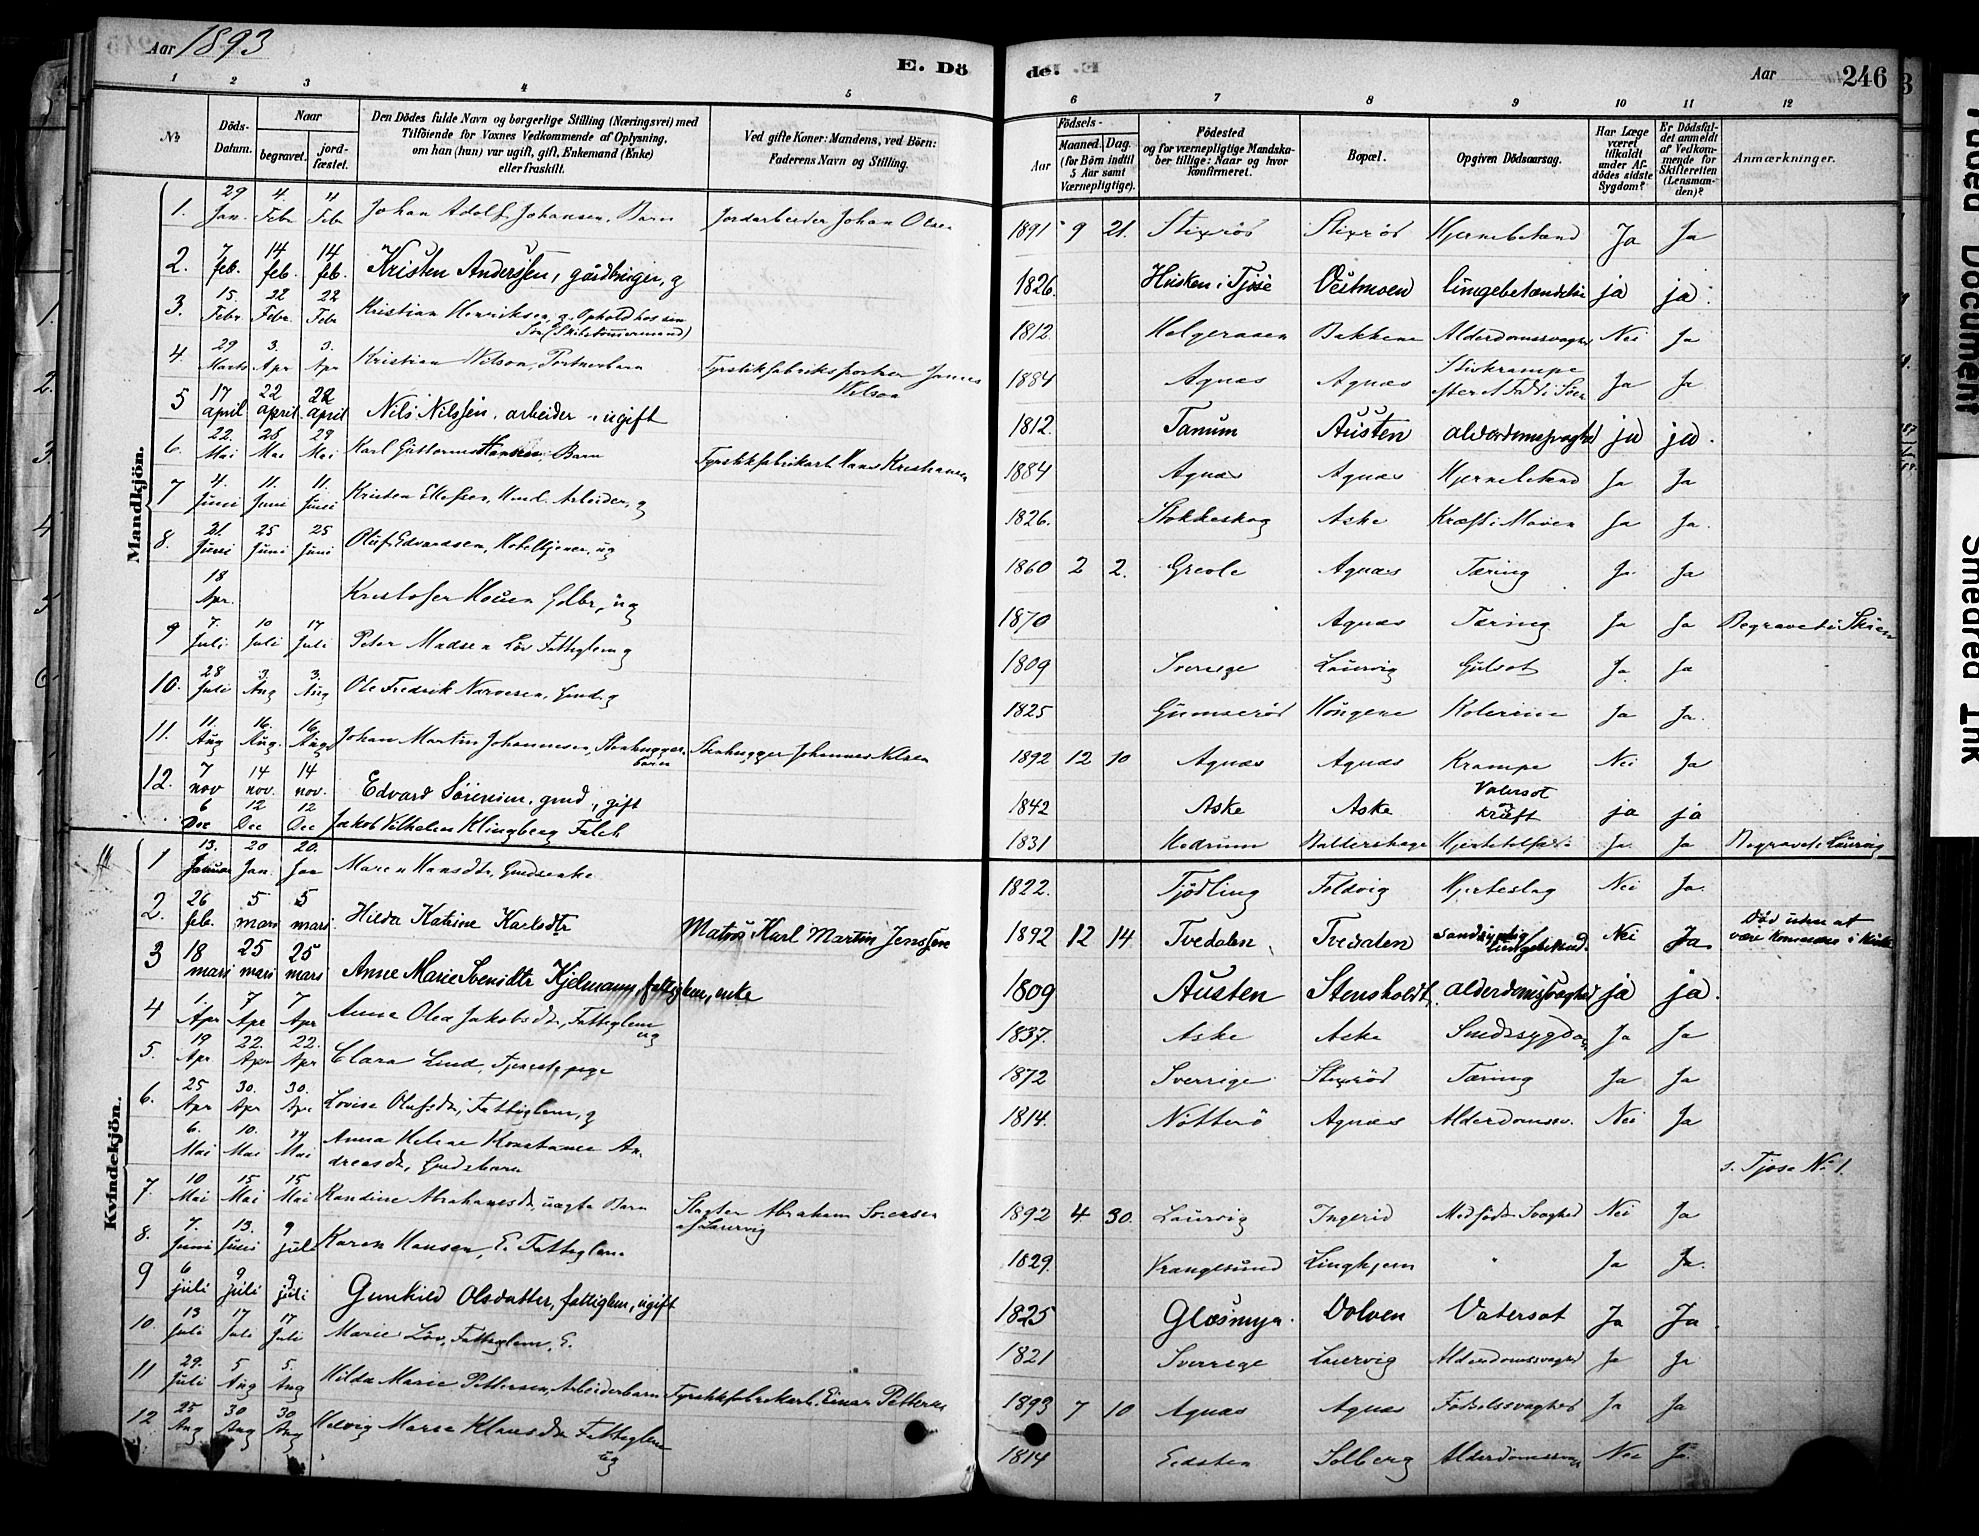 Aar 1893
E. Dö
de.
Aar
246
1 2 3 4 5
6 7 8 9 10 11 12
№
Döds-Datum.
Naar
begravet.
jord-fæstet.
Den Dödes fulde Navn og borgerlige Stilling (Næringsvei) med
Tilföiende for Voxnes Vedkommende af Oplysning,
om han (hun) var ugift, gift, Enkemand (Enke)
eller fraskilt.
Ved gifte Koner: Mandens, ved Börn:
Faderens Navn og Stilling.
Födsels-
Aar
Maaned. Dag.
(for Börn indtil
5 Aar samt
Værnepligtige).
Födested
og for værnepligtige Mandska-
ber tillige: Naar og hvor
konfirmeret.
Bopæl.
Opgiven Dödsaarsag.
Har Læge
været
tilkaldt
under Af-
dödes sidste
Sygdom?
Er Dödsfal-
det anmeldt
af Vedkom-
mende for
Skifteretten
(Lensman-
den)?
Anmærkninger.
Mandkjön.
1. 29 Jan. 4. Febr 4 Feb Johan Adolf Johansen, Barn Jordarbeider Johan Olsen 1891 9 21. Stixrös Stixrös Hjernebetænd Ja Ja
2. 7 feb. 14 feb. 14 feb. Kristen Anderssen, gårdbruger, g 1826. Husken i Tjöse Vestmoen lungebetændelse ja ja.
3. 15. Febr 22 Febr. 22 Febr Kristian Henriksen, g. Ophold hos sin Sön 1812. Holgeraaen Bakkene Alderdomssvaghed Nei Ja
4. 29 Marts 3. Apr 3. Apr Kristian Nilson, Portnerbarn Fyrstikfabriksportner Nilson 1884 Agnæs Agnæs Stivkrampe efter et Fald i Ja Ja
5 17 april 22 april. 22 april Nils Nilssen, arbeider, ugift 1812. Tanum Austen alderdomssvaghed ja ja.
6. 22. Mai 28 Mai 29 Mai Karl Guttorm Hansen, Barn Fyrstikfabrikarb. Hans Kristiansen 1884 Agnæs Agnæs Hjernebetænd Ja Ja
7 4. Juni 11. Juni 11. Juni Kristen Arbeider, g 1826. Stokkeskog Aske Kræft i Maven Ja Ja.
8. 21. Juni 25 Juni 25 Juni Oluf Edvardsen, Hoteltjener, ug 1860 2 2. Grevle Agnæs Tæring Ja Ja
18 Apr. Kristofer ug 1870 Agnæs Tæring Ja Ja Begravet i Skien
9 7. Juli 10 Juli 17 Juli Peter Madsen Löv Fattiglem g 1809 Sverige Laurvig Gulsot Ja Ja
10. 28 Juli 3. Aug 3. Aug Ole Fredrik Narvesen, Gmd. g 1825 Gumserød Kongene Kolerine Ja Ja.
11. 11. Aug 16. Aug. 16. Aug Johan Martin Johannesen, Stenhugger barn Stenhugger Johannes Nilsen 1892 12 10 Agnæs Agnæs Krampe Nei Ja
12. 7 nov 14 nov. 14 nov. Edvard Sörensen, gmd, gift 1842 Aske Aske Vatersot og Kræft ja ja
6 Dec 12 Dec 12 Dec Jakob Vilhelm Klingberg Falch 1831 Hedrum Baldershage Ja. Ja Begravet i Laurvig
Kvindekjön.
1 13. Januar 20 Jan. 20. Jan Maren Hansdtr, Gmdsenke 1822. Tjödling Foldvig Hjerteslag Nei Ja.
2. 26 feb. 5 mars 5 mars Hilda Katrine Karlsdtr Matros Karl Martin Jenssen 1892 12 14. Tvedalen Tvedalen sandsynlig lungebetænd. Nei Ja Död uden at være
3 18 mars 25 mars 25 mars Anne Marie Svensdtr Kjelmann, fattiglem, enke 1809 Austen Stensholdt alderdomssvaghed ja ja.
4 1. Apr 7 Apr 7 Apr Anna Olea Jakobsdtr, Fattiglem ug 1837. Aske Aske Sindssygdom Ja Ja
5. 19 Apr 22. Apr 22. Apr Clara Lind, Tjenestepige 1872 Sverrige Stixröd Tæring Ja Ja
6. 25 Apr 30. Apr 30. Apr Lovise Olufsdtr, Fattiglem, g 1814. Nötterö Agnæs Alderdomssv. Nei Ja
6. Mai 10. Mai 14 Mai Anna Helene Konstance Andreasdtr, Gmdsbarn s. Tjöse No 1.
7. 10 Mai 15 Mai 15 Mai Randine Abrahamsdtr, uægte Barn Slagter Abraham Sörensen af Laurvig 1892 4. 30. Laurvig Ingerid Medfödt Svaghed Nei Ja
8. 7. Juni 13. Juni 9 juli Karen Hansen, E. Fattiglem 1829. Krangesund Linghjem " Ja Ja.
9 6 juli 9 juli 9 juli Gunhild Olsdatter, fattiglem, ugift 1825 Glosmyr. Dolven Vatersot Ja Ja.
10. 13 Juli 17 Juli 17 Juli Marie Löv, Fattiglem, E. 1821 Sverrige Laurvig Alderdomssvaghed Ja Ja
11 29. Juli 5 Aug 5. Aug Hilda Marie Pettersen, Arbeiderbarn Fyrstikfabrikarb. Einar Pettersen 1893 7 10 Agnæs Agnæs Födselssvaghed Ja Ja
12 25 Aug 30 Aug 30 Aug Helvig Marie Klausdtr Fattiglem ug 1814 Eidsten Solberg Alderdomssvag Nei Ja
Faded Document
Smeared Ink